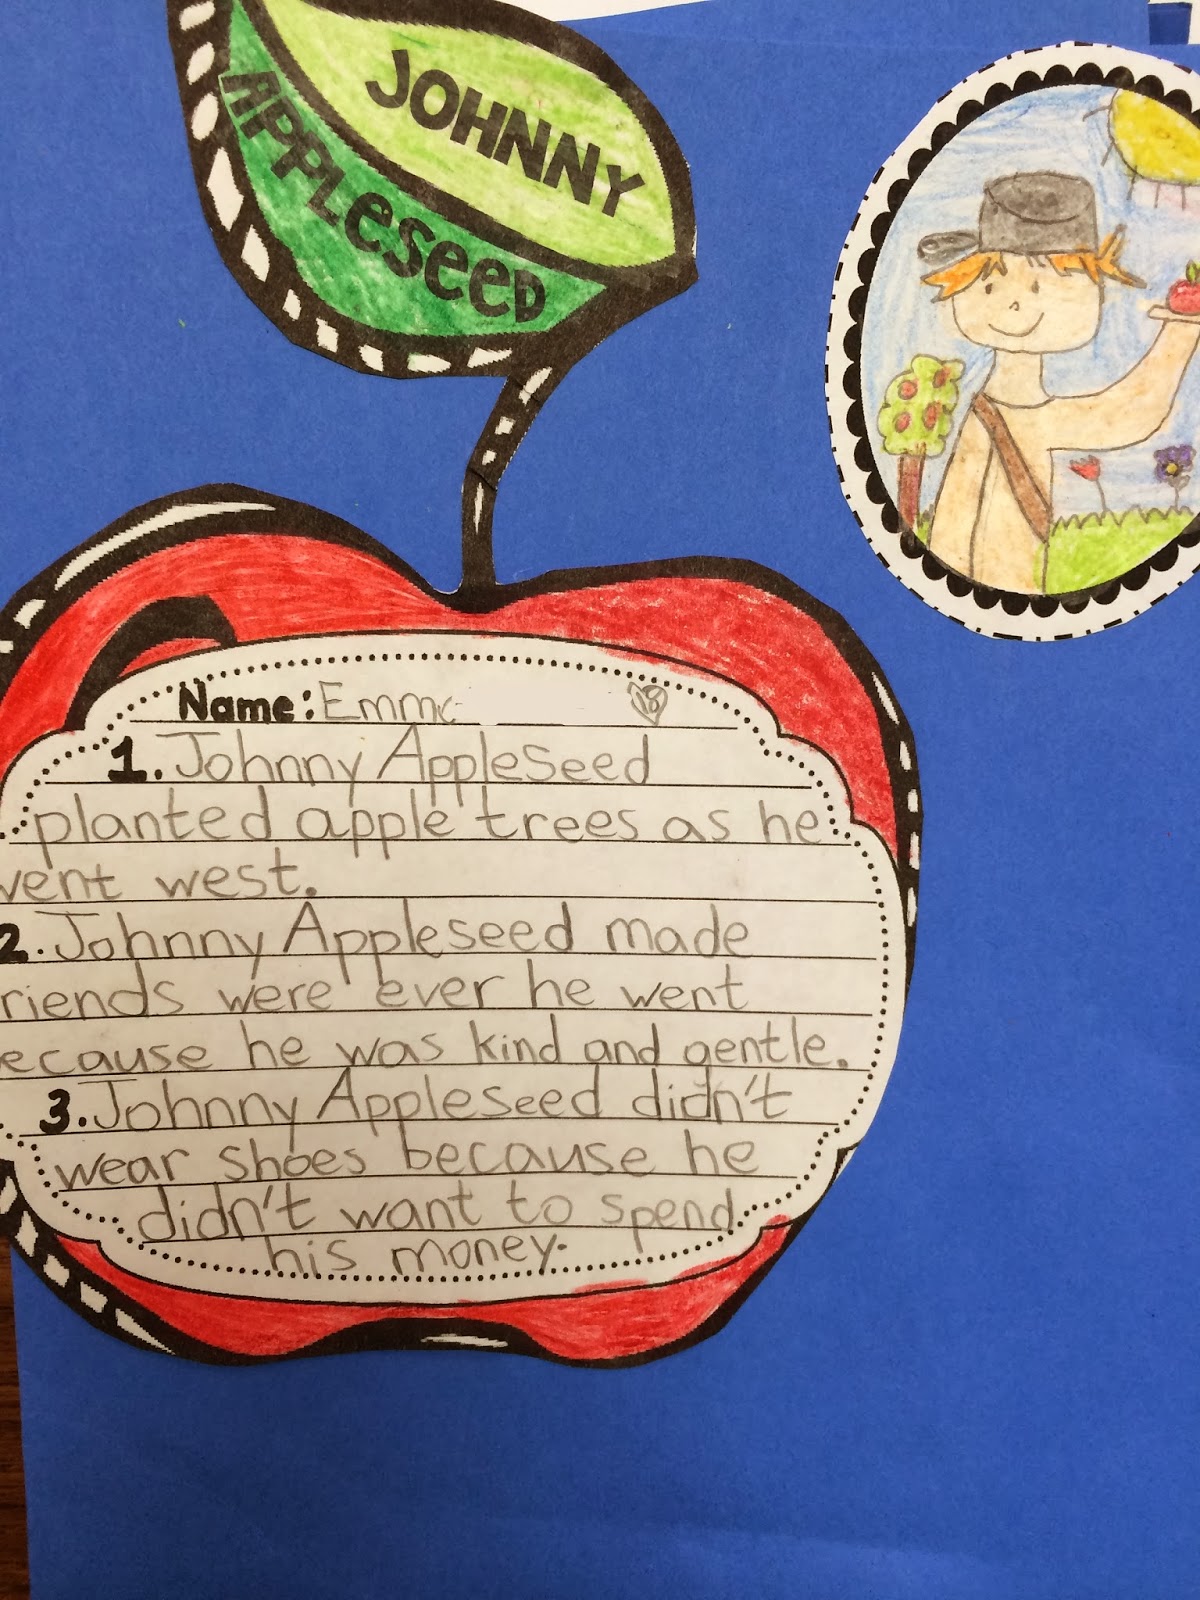 JOHNNY
APPLeSeeD
Name: Emma
18
1. Johnny Appleseed
planted apple trees as he
went west.
2. Johnny Appleseed made
riends were ever he went
ecause he was kind and gentle.
3. Johnny Appleseed didn't
wear shoes because he
didn't want to spend
his money.